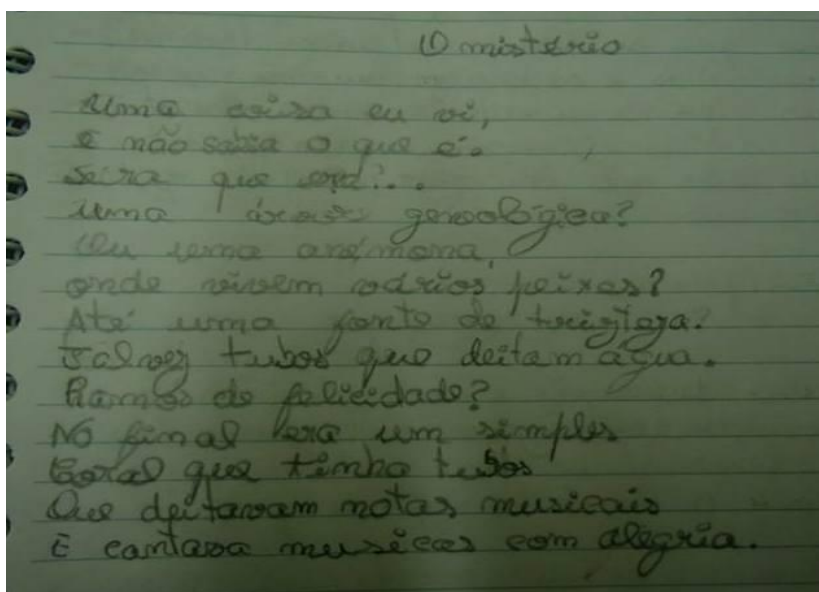 O mistério
Uma coisa eu vi,
e não sabia o que é.
Será que era?..
Uma árvore genealógica?
Ou uma anémona,
onde vivem vários peixes?
Até uma fonte de tristeza.
Talvez tubos que deitam água.
Ramos de felicidade?
No final era um simples
Coral que tinha tubos
Que deitavam notas musicais
E cantava musicas com alegria.